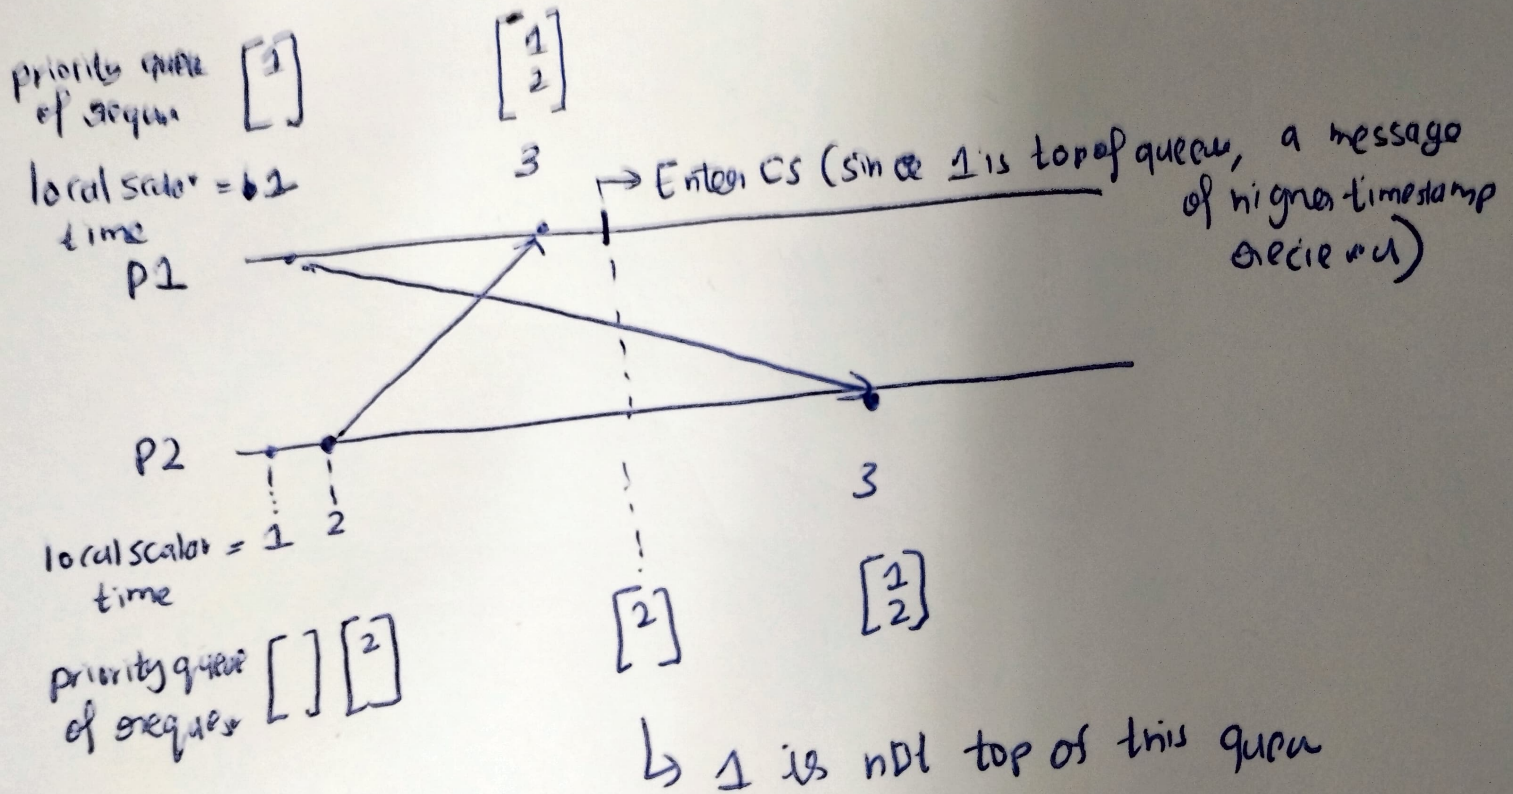 priority queue [1] [1
2]
of reques
3
local scalar = 1
time
Enter CS (since 1 is top of queue, a message
of higher timestamp
recieved)
P1
P2
3
1 2
local scalar =
time
[2] [1
2]
priority queue [ ] [2]
of reques
↳ 1 is not top of this queu